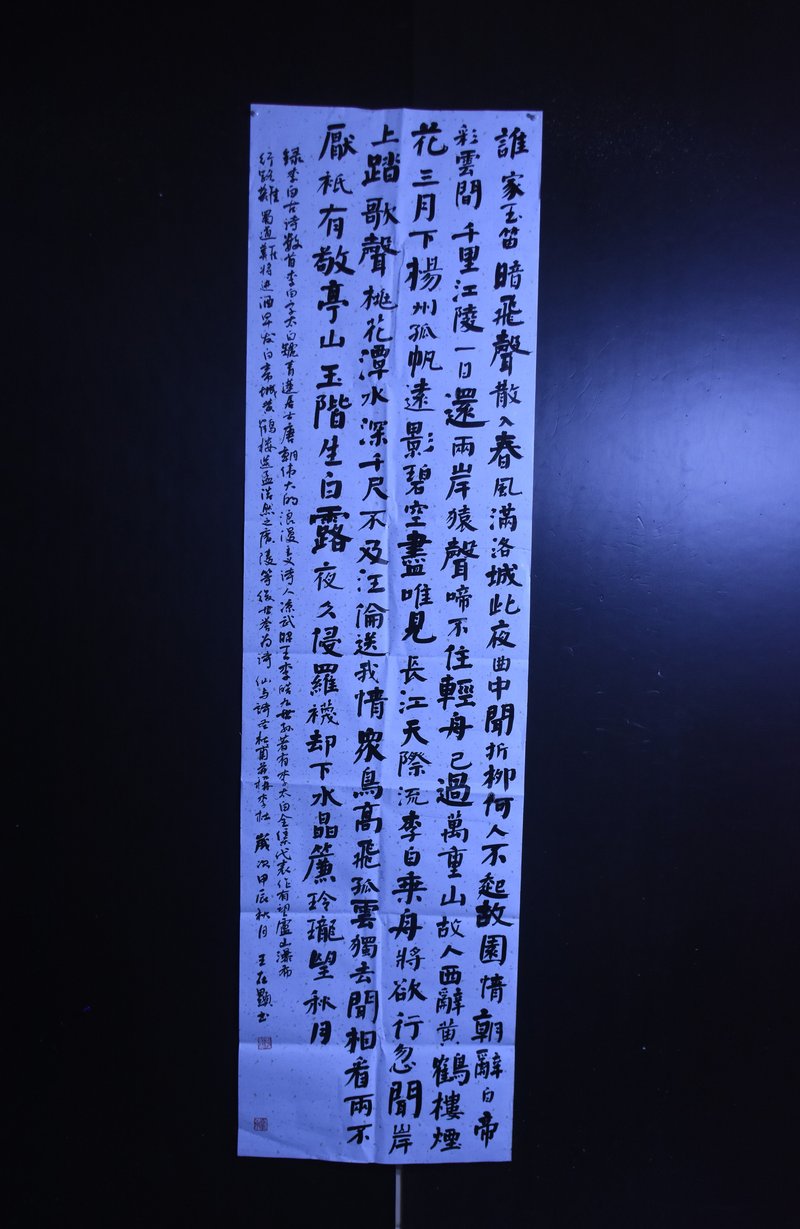 誰家玉笛暗飛聲散入春風滿洛城此夜曲中聞折柳何人不起故園情朝辭白帝
彩雲間千里江陵一日還兩岸猿聲啼不住輕舟已過萬重山故人西辭黃鶴樓煙
花三月下楊州孤帆遠影碧空盡唯見長江天際流李白乘舟將欲行忽聞岸
上踏歌聲桃花潭水深千尺不及汪倫送我情眾鳥高飛孤雲獨去閒相看兩不
厭衹有敬亭山玉階生白露夜久侵羅襪却下水晶簾玲瓏望秋月
錄李白古诗数首李白字太白號青莲居士唐朝伟大的浪漫主义诗人凉武昭王李暠九世孙著有李太白全集代表作有望廬山瀑布
行路難蜀道難将进酒早发白帝城黄鶴樓送孟浩然之廣陵等後世誉为诗仙与詩圣杜甫并稱李杜歲次甲辰秋月王在顯书